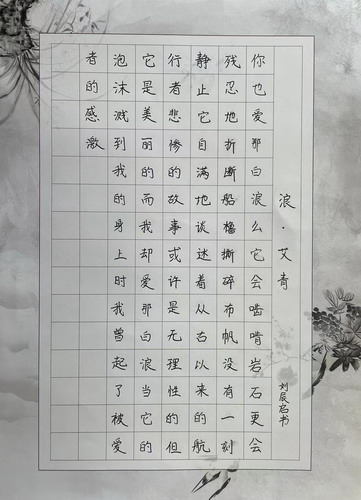 浪·艾青
你也爱那白浪么它会啮啃岩石更会
残忍地折断船橹撕碎布帆没有一刻
静止它自满地谈述着从古以来的航
行者悲惨的故事或许是无理性的但
它是美丽的而我却爱那白浪当它的
泡沫溅到我的身上时我曾起了被爱
者的感激